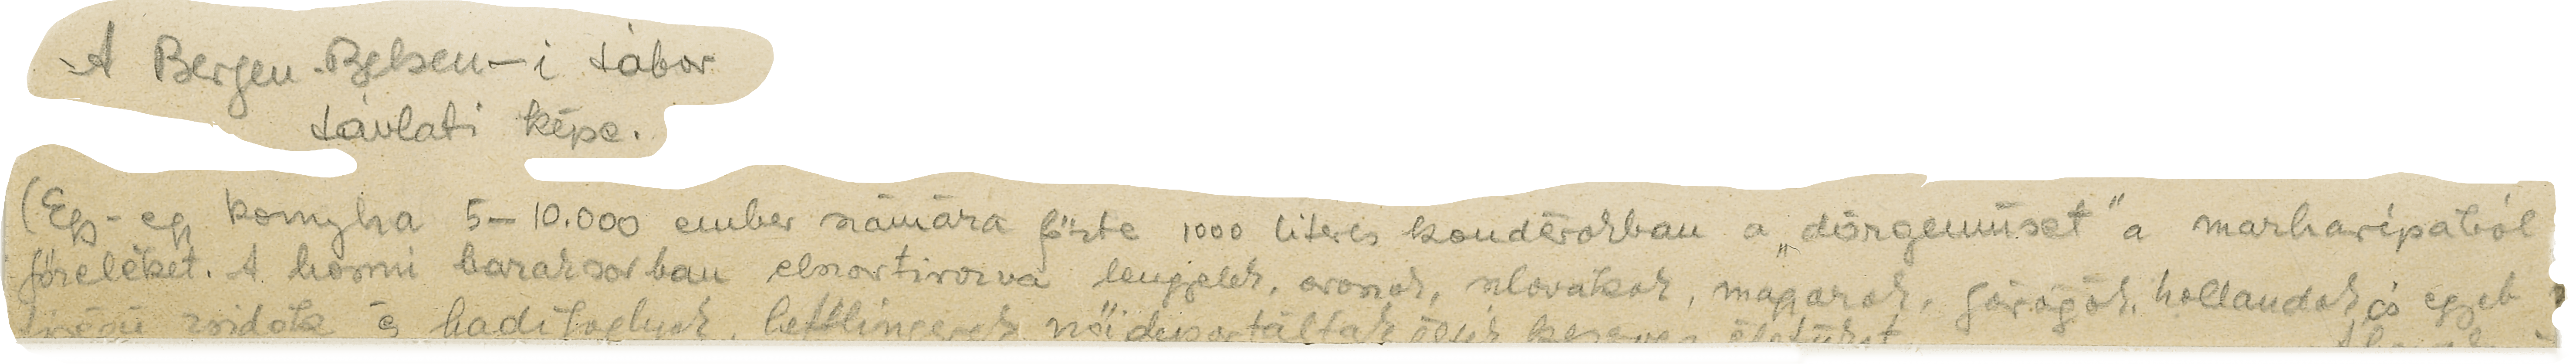 A Bergen-Belsen-i tábor
távlati képe.
(Egy-egy konyha 5–10.000 ember számára főzte 1000 literes kondérokban a „dörgemüset" a marharípából
főzeléket. A hosszú baraksorban elszortirozva lengyelek, oroszok, szlovákok, magyarok, görögök, hollandok és egyéb
zsidók és hadifoglyok, häftlingerek női deportáltak élték keserves életüket